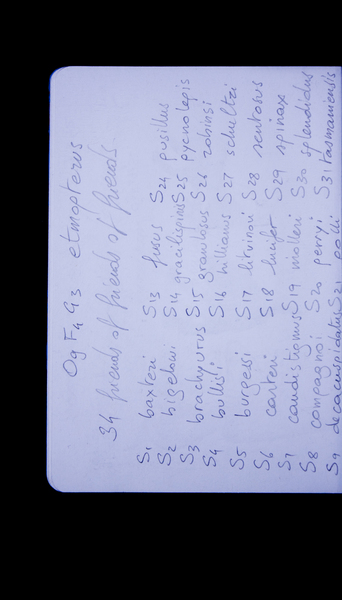 Og F4 G3 etmopterus
34 friends of friends of friends.
S1 baxteri S13 fusus S24 pusillus
S2 bigelowi S14 gracilispinis S25 pycnolepis
S3 brachyurus S15 granulosus S26 robinsi
S4 bullisi S16 hillianus S27 schultzi
S5 burgessi S17 litvinovi S28 sentosus
S6 carteri S18 lucifer S29 spinax
S7 caudistigmus S19 molleri S30 splendidus
S8 compagnoi S20 perryi S31 tasmaniensis
S9 decacuspidatus S21 polli